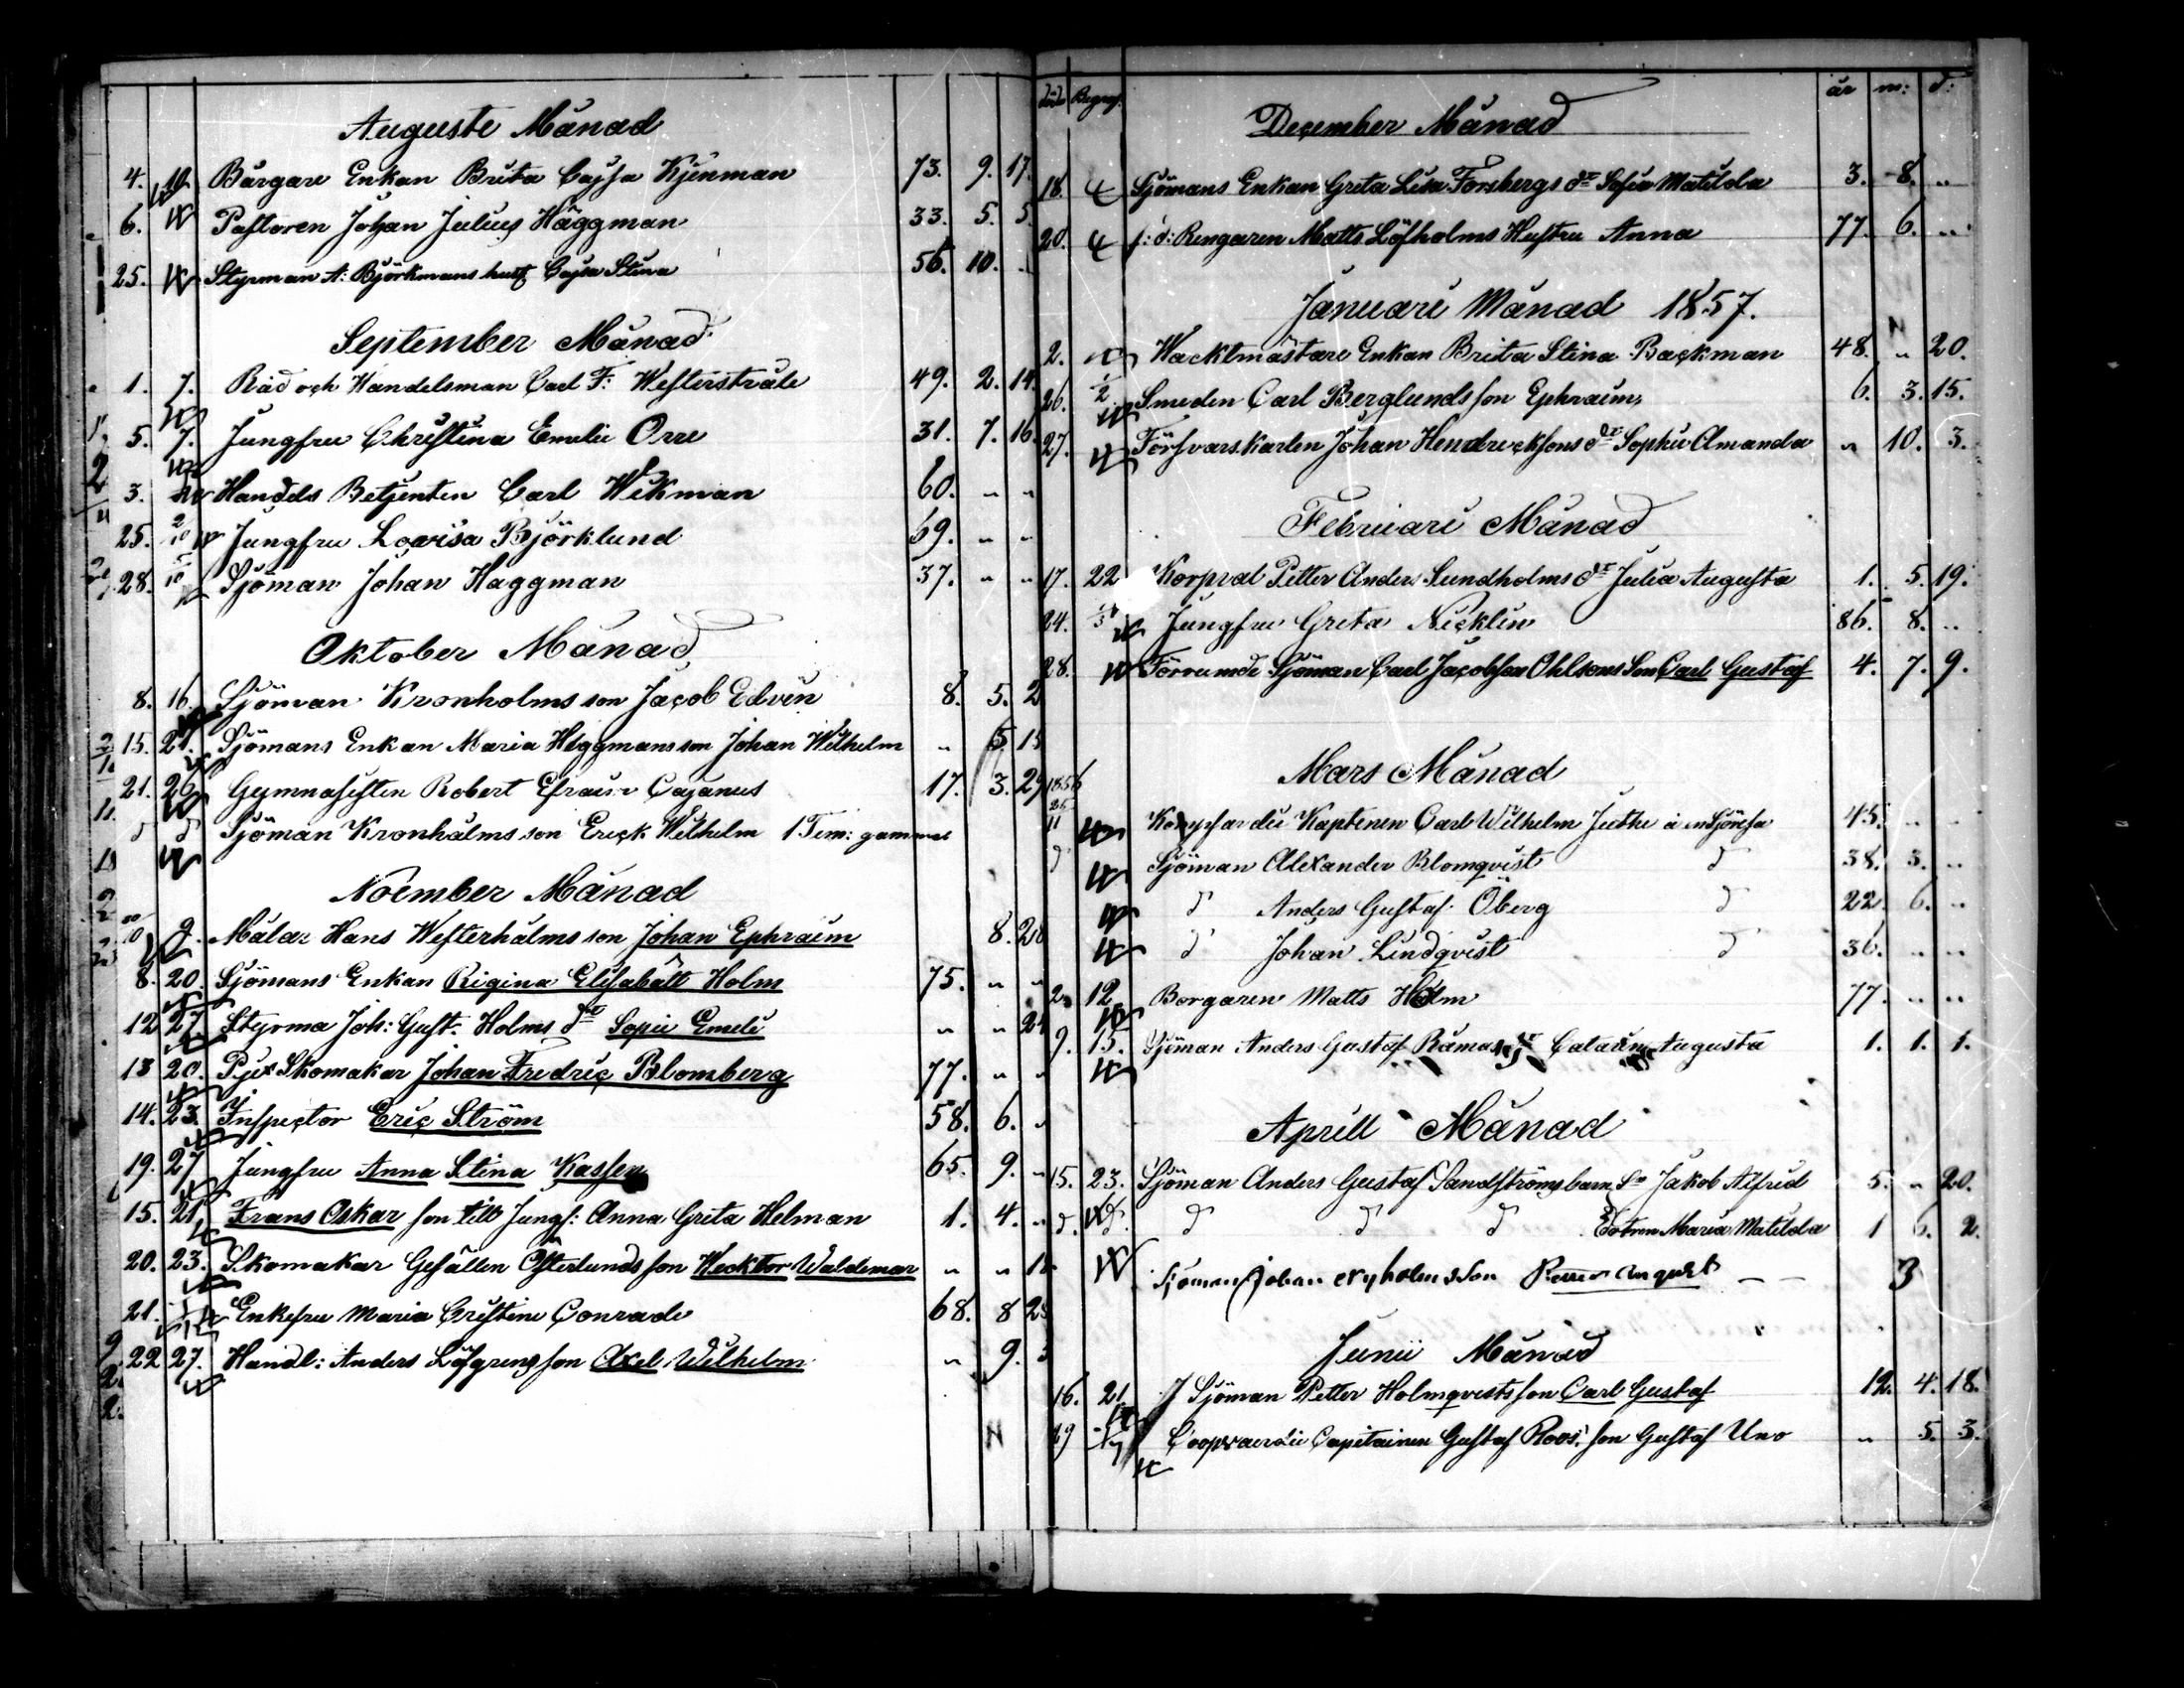 Auguste Månad
4. 10. Bårgare Enkan Brita Cajsa Kjenman 73. 9. 17.
6. Pastoren Johan Julius Häggman 33. 5. 5.
25. Styrman A: Björkmans hust Cajsa Stina 56. 10. ..
September Månad
1. 7. Råd och Handelsman Carl F: Westerstråle 49. 2. 14.
5. 7. Jungfru Christina Emelie Orre 31. 7. 16.
3. Handels Betjenten Carl Wikman 60. " "
25. 2/10 Jungfru Lovisa Björklund 69. " "
28. 5/10 Sjöman Johan Haggman 37. " "
Oktober Månad
8. 16. Sjöman Kronholms son Jacob Edvin 8. 5. 2
15. 21. Sjömans Enkan Maria Häggmans son Johan Wilhelm " 5 15
21. 26. Gymnasisten Robert Efraim Cajanus 17. 3. 29
d d Sjöman Kronhalms son Erick Wilhelm 1 Tim: gammal
Noember Månad
9. Målar Hans Westerhålms son Johan Ephraim 8. 28
8. 20. Sjömans Enkan Rigina Elisabátt Holm 75. " "
12 27. Styrma Joh: Gust. Holms dr Sopie Emeli " " 24
13 20. Skomakar Johan Fredric Blomberg 77. " "
14. 23. Inspector Eric Ström 58. 6. "
19. 27 Jungfru Anna Stina Kassen 65. 9. "
15. 21. Frans Oskar son till Jungf: Anna Greta Helman 1. 4. "
20. 23. Skomakar Gesällen Österlunds son Wecktor Waldemar " " 18
21. Enkefru Maria Cristine Conradi 68. 8 28
22 27. Handl: Anders Löfgrens son Axel Wilhelm " 9. 3
döde Begraf. år m: d:
December Månad
18. Sjömans Enkan Greta Lisa Forsbergs dr Sofia Matilda 3. 8. ..
20. f: d: Rengaren Matts Löfholms Hustru Anna 77. 6. ..
Januari Månad 1857.
2. Wacktmästare Enkan Brita Stina Backman 48. " 20.
26. Smeden Carl Berglunds son Ephraim 6. 3. 15.
27. Försvarskarlen Johan Hendricksons dr Sophie Amanda " 10. 3.
Februari Månad
17. 22 Korpral Petter Anders Sundholms dr Julia Augusta 1. 5. 19.
24. Jungfru Greta Nicklin 86. 8. ..
28. Förrumde Sjöman Carl Jacobson Ohlsons Son Carl Gustaf 4. 7. 9.
Mars Månad
1856
25/11 Kompfardie Kaptenen Carl Wilhelm Juthe 45. .. ..
d Sjöman Alexander Blomqvist d 38. 3. ..
d Anders Gustaf Öberg d 22. 6. ..
d Johan Lindqvist d 36. .. ..
2. 12 Borgaren Matts Holm 77. .. ..
9. 15. Sjöman Anders Gustaf Råmas dr Catarina Augusta 1. 1. 1.
Aprill Månad
15. 23. Sjöman Anders Gustaf Sandströms barn Sn Jakob Alfrid 5. " 20.
d. d. d d d Dotren Maria Matilda 1 6. 2.
Sjöman Johan Nyholms Son Petter August — — 3
Junii Månad
16. 21. Sjöman Petter Holmqvists son Carl Gustaf 12. 4. 18.
29 Coopvaerdie Capitainen Gustaf Roos' son Gustaf Uno " 5. 3.